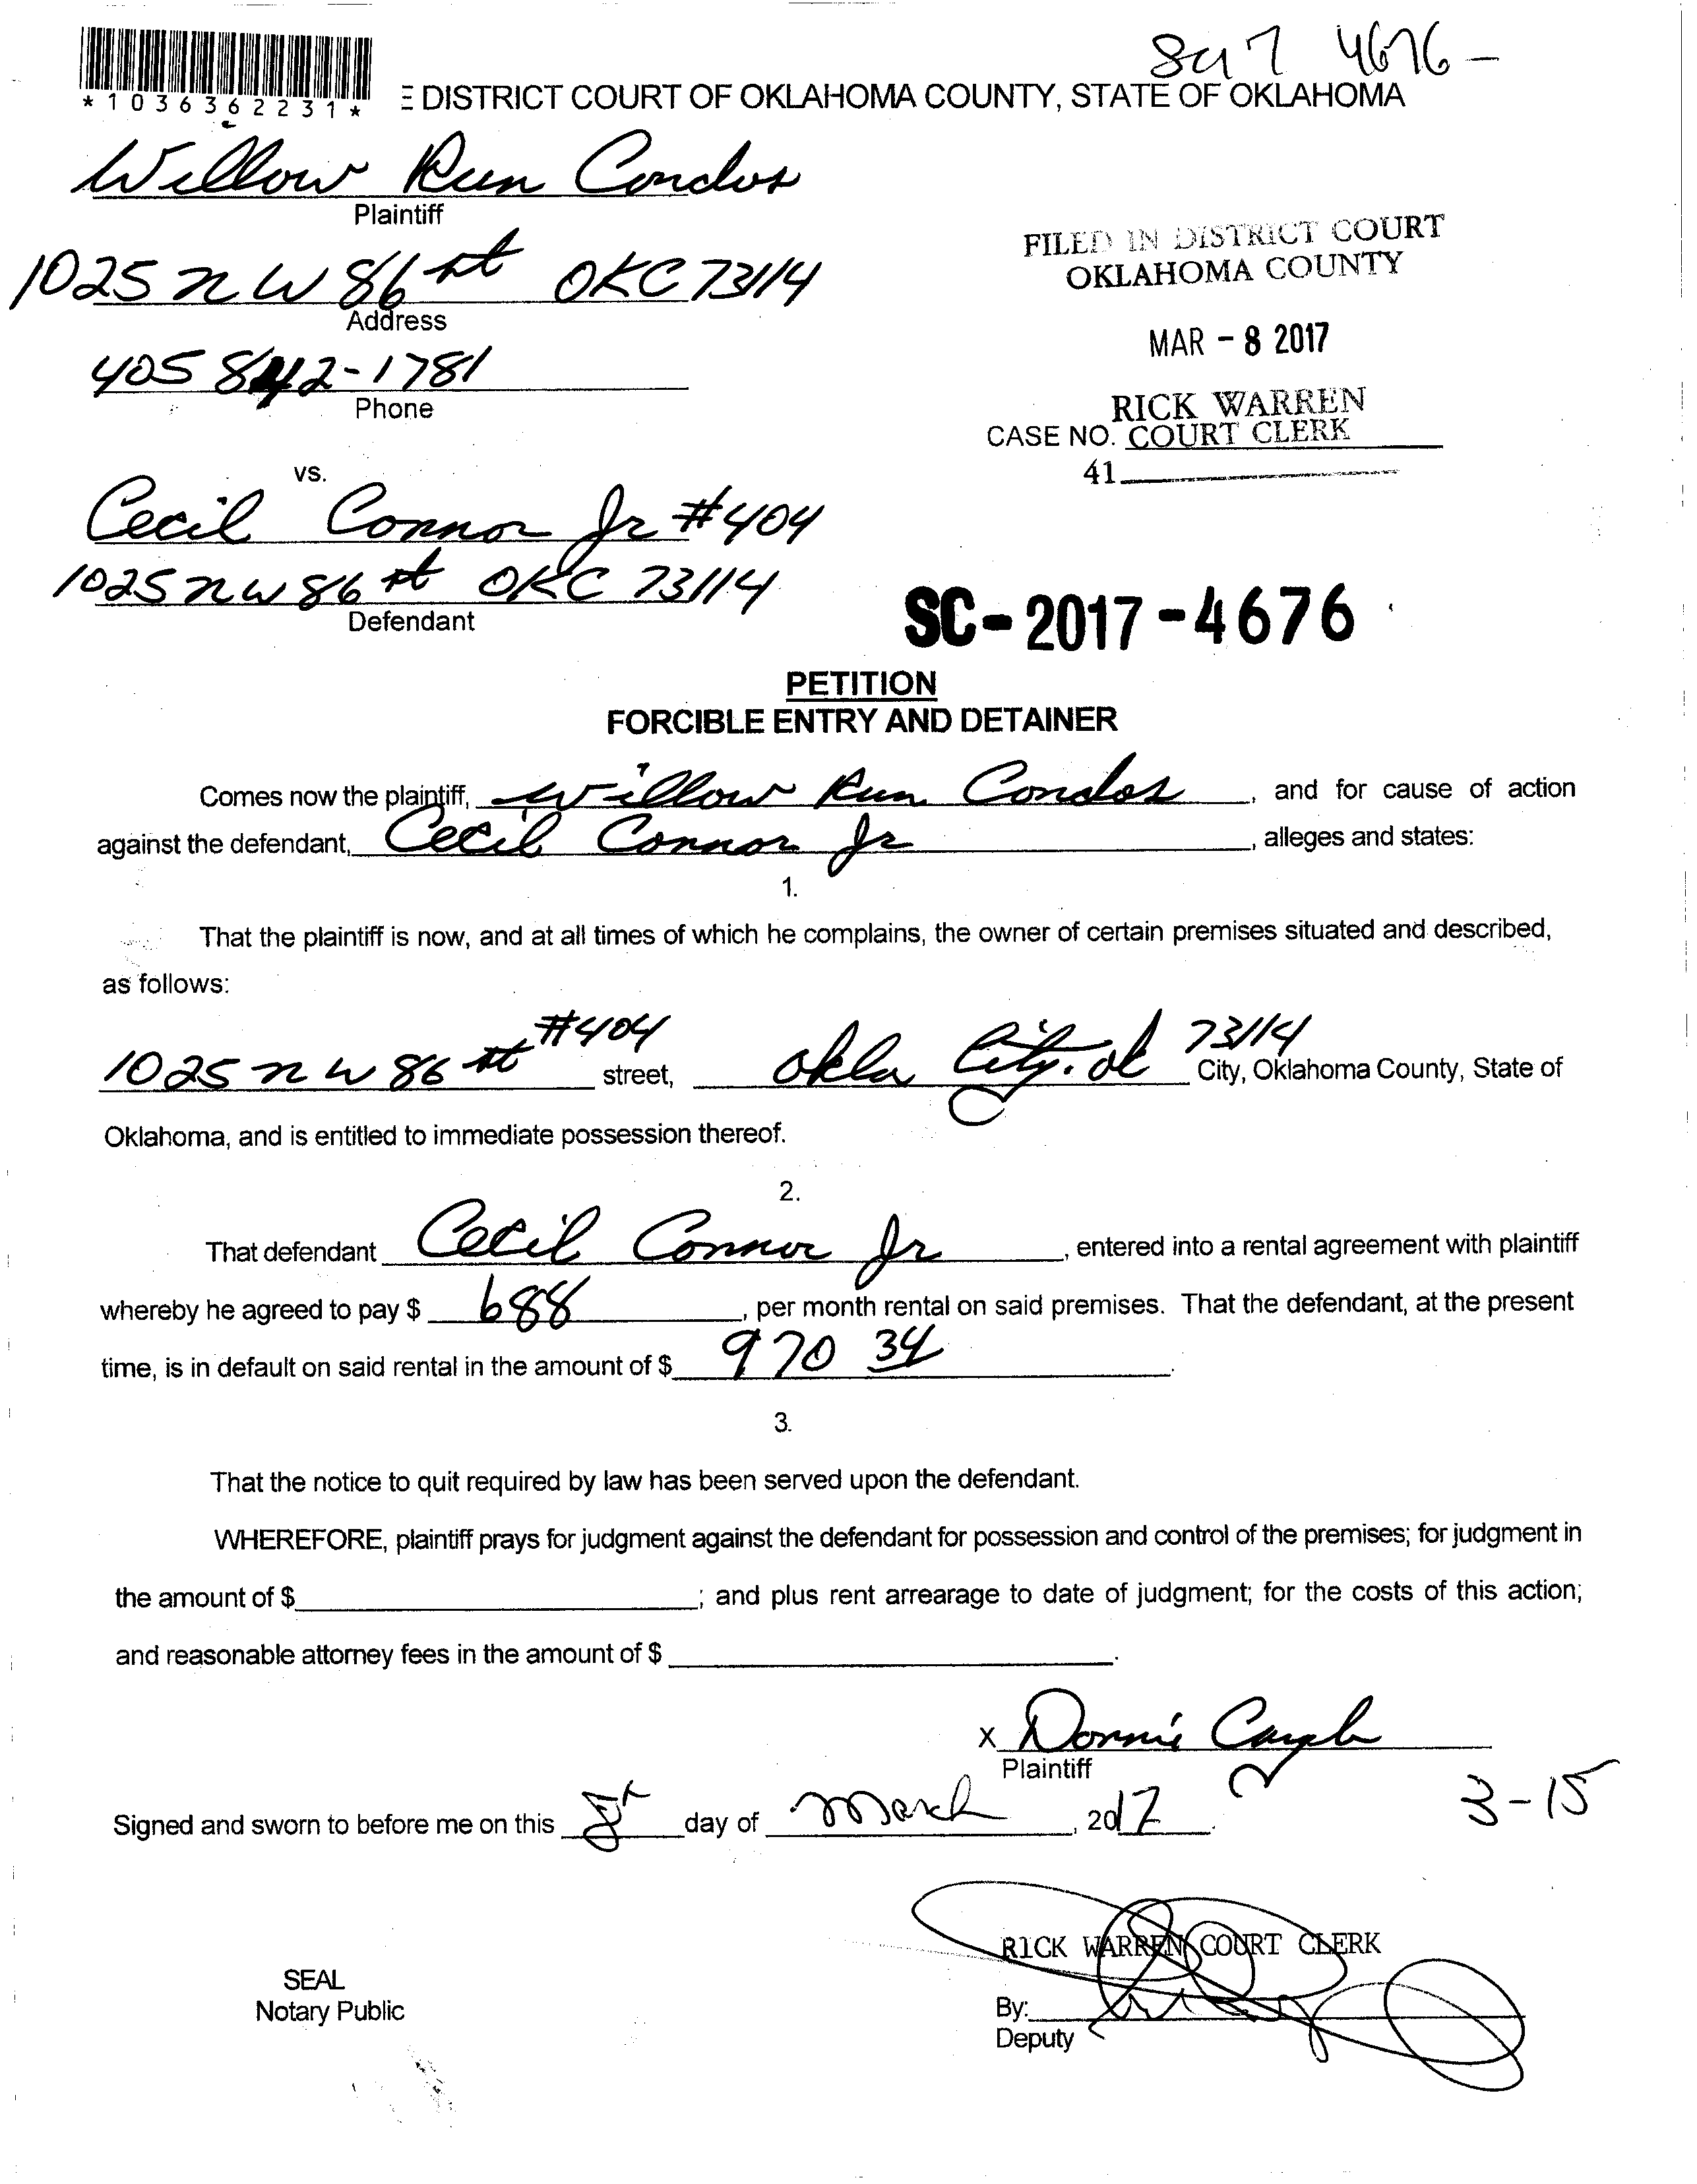 4676-
*1036362231*
E DISTRICT COURT OF OKLAHOMA COUNTY, STATE OF OKLAHOMA
Willow Run Condos
Plaintiff
1025 NW 86 st OKC 73114
Address
405 842-1781
Phone
FILED IN DISTRICT COURT
OKLAHOMA COUNTY
MAR - 8 2017
RICK WARREN
CASE NO. COURT CLERK
41
vs.
Cecil Connor Jr #404
1025 NW 86 st OKC 73114
Defendant
SC-2017-4676
PETITION
FORCIBLE ENTRY AND DETAINER
Comes now the plaintiff, Willow Run Condos, and for cause of action
against the defendant, Cecil Connor Jr, alleges and states:
1.
That the plaintiff is now, and at all times of which he complains, the owner of certain premises situated and described,
as follows:
1025 NW 86 st #404 street, Okla City. ok 73114 City, Oklahoma County, State of
Oklahoma, and is entitled to immediate possession thereof.
2.
That defendant Cecil Connor Jr, entered into a rental agreement with plaintiff
whereby he agreed to pay $ 688, per month rental on said premises. That the defendant, at the present
time, is in default on said rental in the amount of $ 970 34.
3.
That the notice to quit required by law has been served upon the defendant.
WHEREFORE, plaintiff prays for judgment against the defendant for possession and control of the premises; for judgment in
the amount of $ ; and plus rent arrearage to date of judgment; for the costs of this action;
and reasonable attorney fees in the amount of $ .
X Donnie
Plaintiff
3-15
Signed and sworn to before me on this 8th day of March, 2017.
RICK WARREN COURT CLERK
SEAL
Notary Public
By:
Deputy